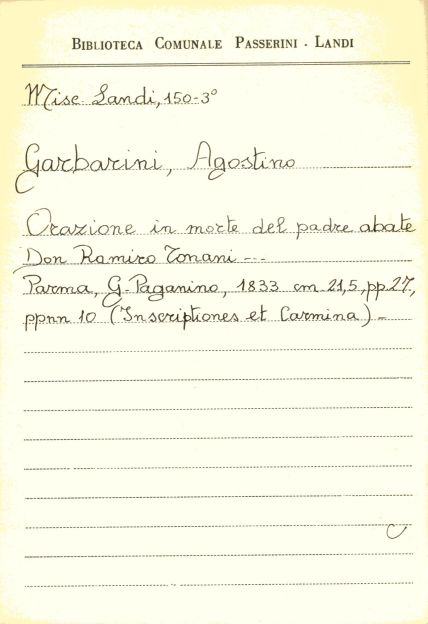 BIBLIOTECA COMUNALE PASSERINI - LANDI
Misc. Landi, 150-3°
Garbarini, Agostino
Orazione in morte del padre abate
Don Ramiro Tonani ---
Parma, G. Paganino, 1833 cm 21,5, pp. 27,
ppnn 10 (Inscriptiones et Carmina) -